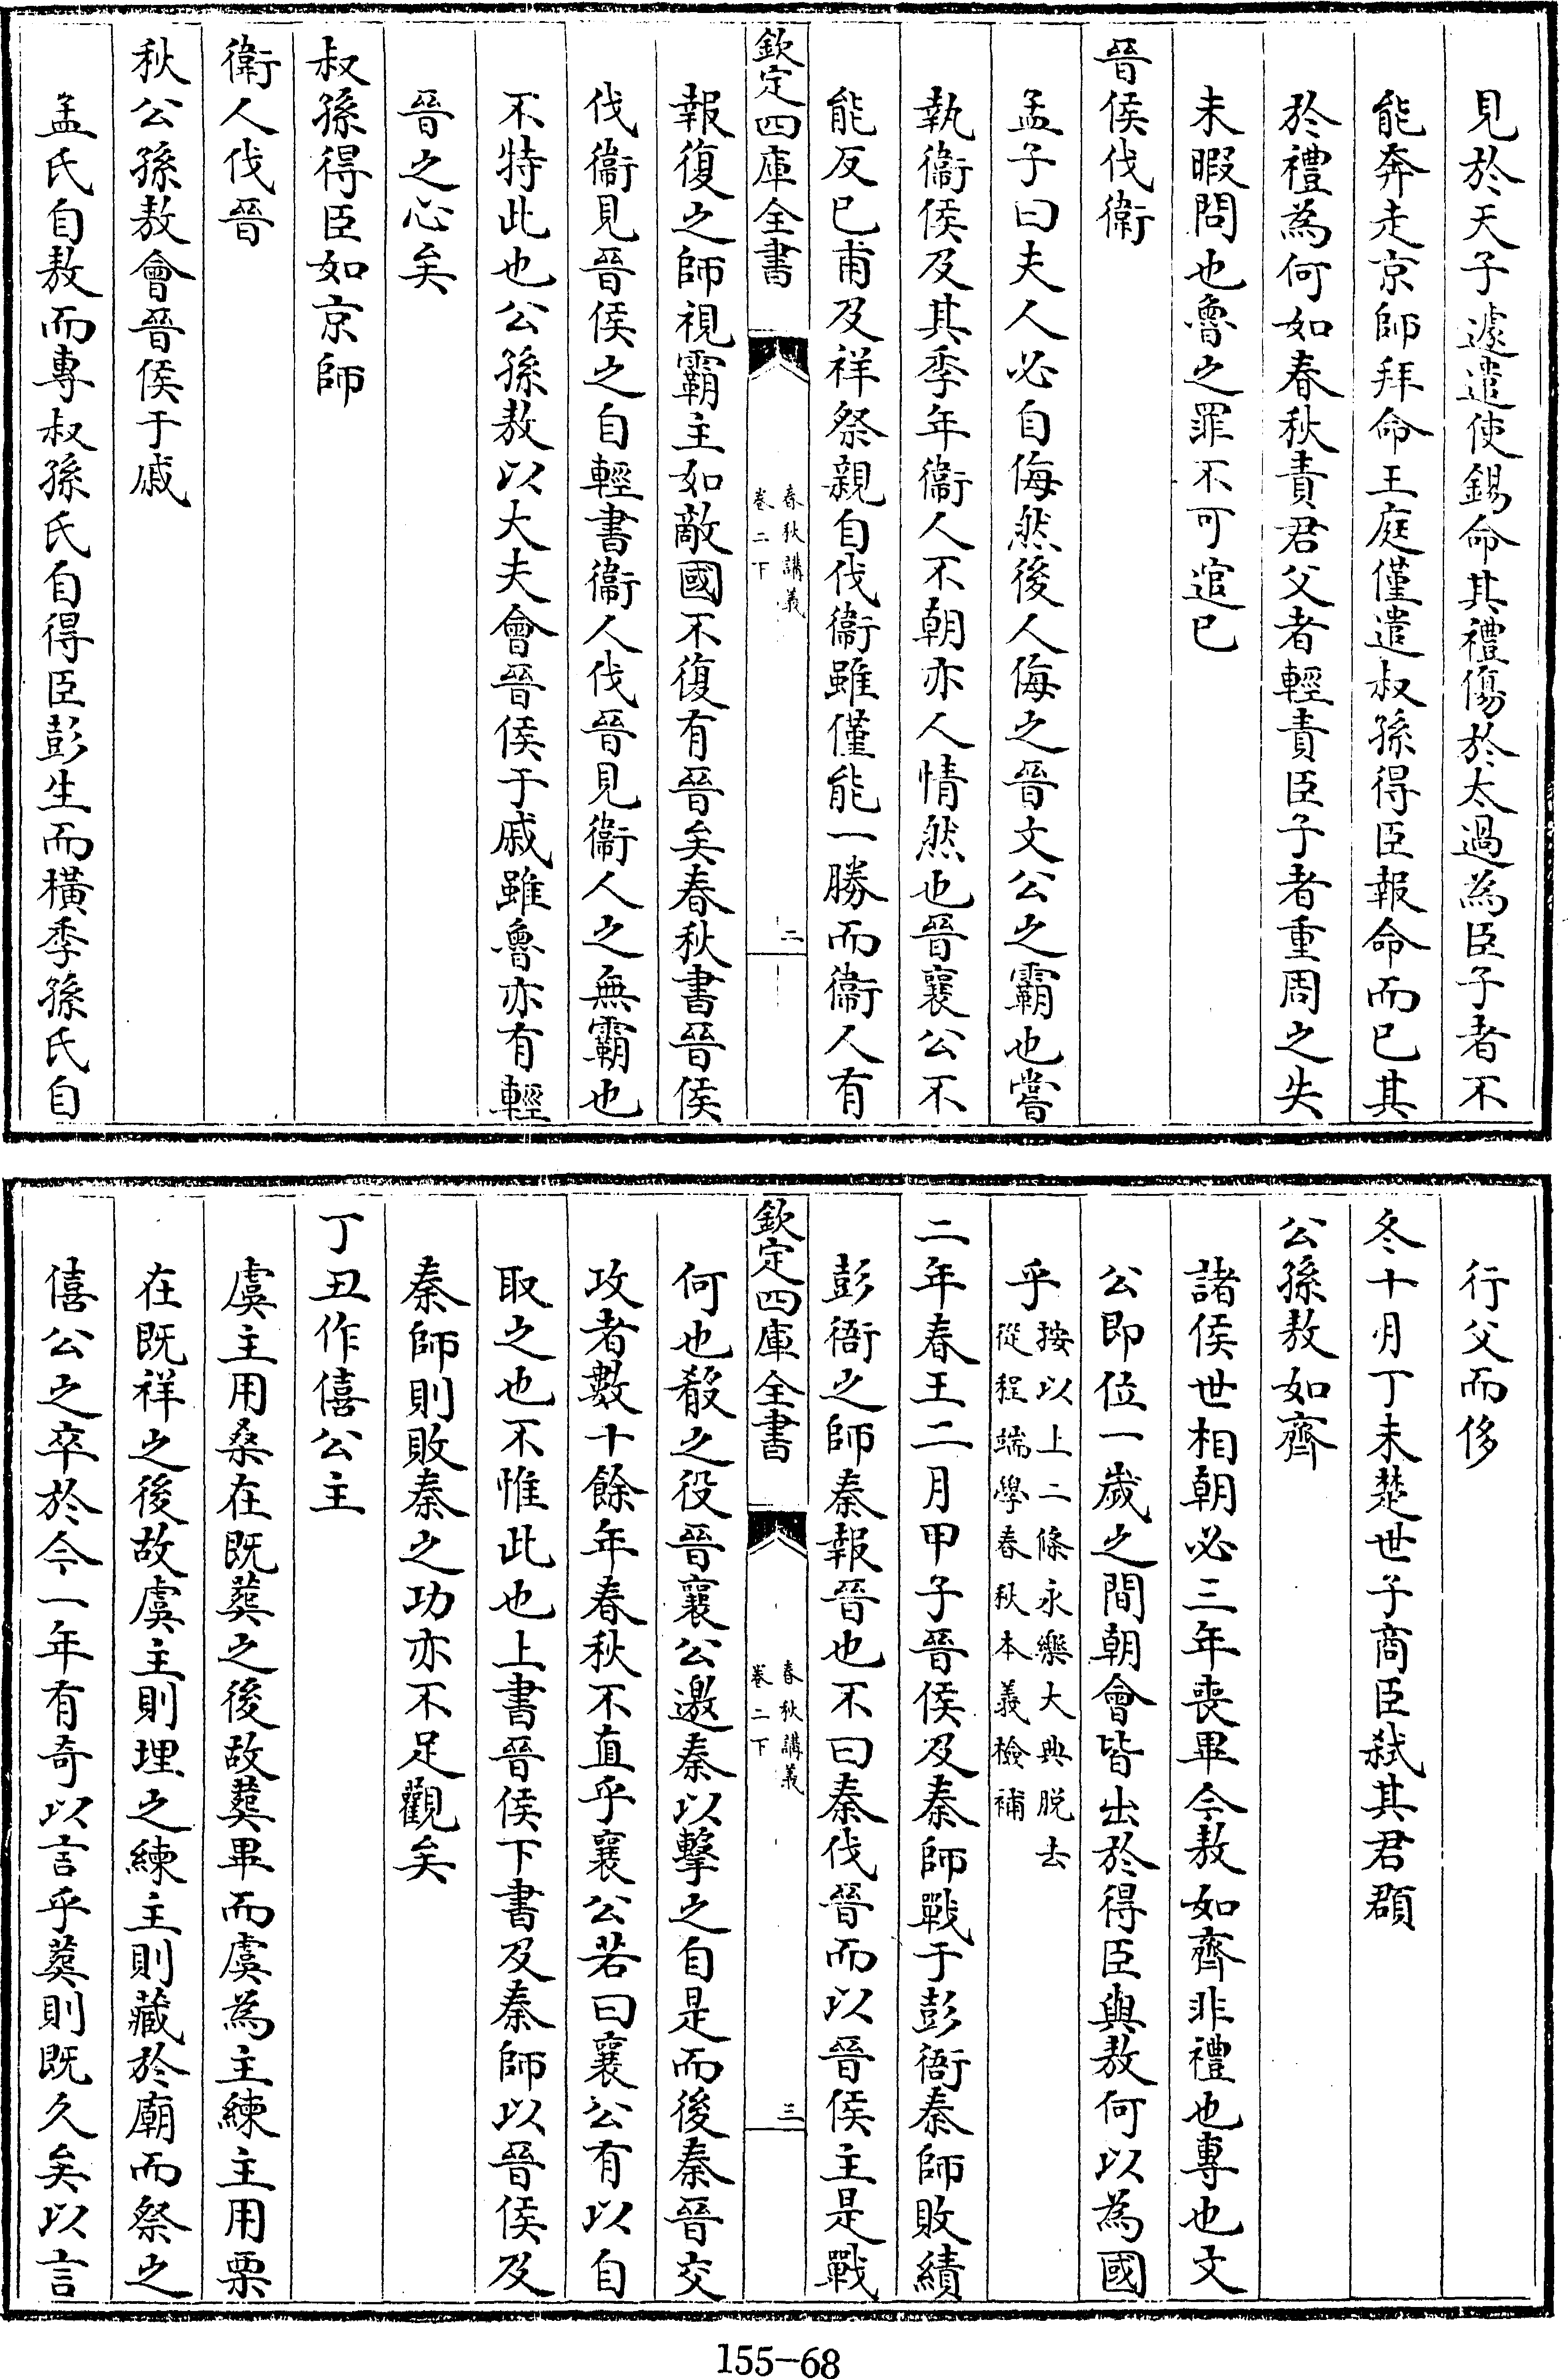 見於天子遽遣使錫命其禮傷於太過為臣子者不
能奔走京師拜命王庭僅遣叔孫得臣報命而已其
於禮為何如春秋責君父者輕責臣子者重周之失
未暇問也魯之罪不可逭已
晉侯伐衛
孟子曰夫人必自侮然後人侮之晉文公之霸也嘗
執衞侯及其季年衞人不朝亦人情然也晉襄公不
能反已甫及祥祭親自伐衞雖僅能一勝而衞人有
欽定四庫全書
春秋講義
卷二下
二
報復之師視霸主如敵國不復有晉矣春秋書晉侯
伐衞見晉侯之自輕書衞人伐晉見衞人之無霸也
不特此也公孫敖以大夫會晉侯于戚雖魯亦有輕
晉之心矣
叔孫得臣如京師
衛人伐晉
秋公孫敖會晉侯于戚
孟氏自敖而專叔孫氏自得臣彭生而橫季孫氏自
行父而侈
冬十月丁未楚世子商臣弑其君頵
公孫敖如齊
諸侯世相朝必三年喪畢今敖如齊非禮也專也文
公即位一歲之間朝會皆出於得臣與敖何以為國
乎按以上二條永樂大典脱去
從程端學春秋本義檢補
二年春王二月甲子晉侯及秦師戰于彭衙秦師敗績
彭衙之師秦報晉也不曰秦伐晉而以晉侯主是戰
欽定四庫全書
春秋講義
卷二下
三
何也殽之役晉襄公邀秦以擊之自是而後秦晉交
攻者數十餘年春秋不直乎襄公若曰襄公有以自
取之也不惟此也上書晉侯下書及秦師以晉侯及
秦師則敗秦之功亦不足觀矣
丁丑作僖公主
虞主用桑在既葬之後故葬畢而虞為主練主用栗
在既祥之後故虞主則埋之練主則藏於廟而祭之
僖公之卒於今一年有奇以言乎葬則既久矣以言
155-68